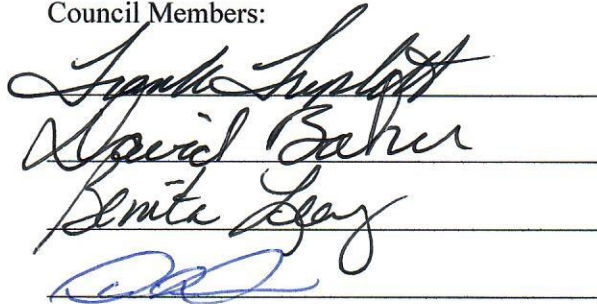 Council Members:
Frank Triplett
David Baker
Benita